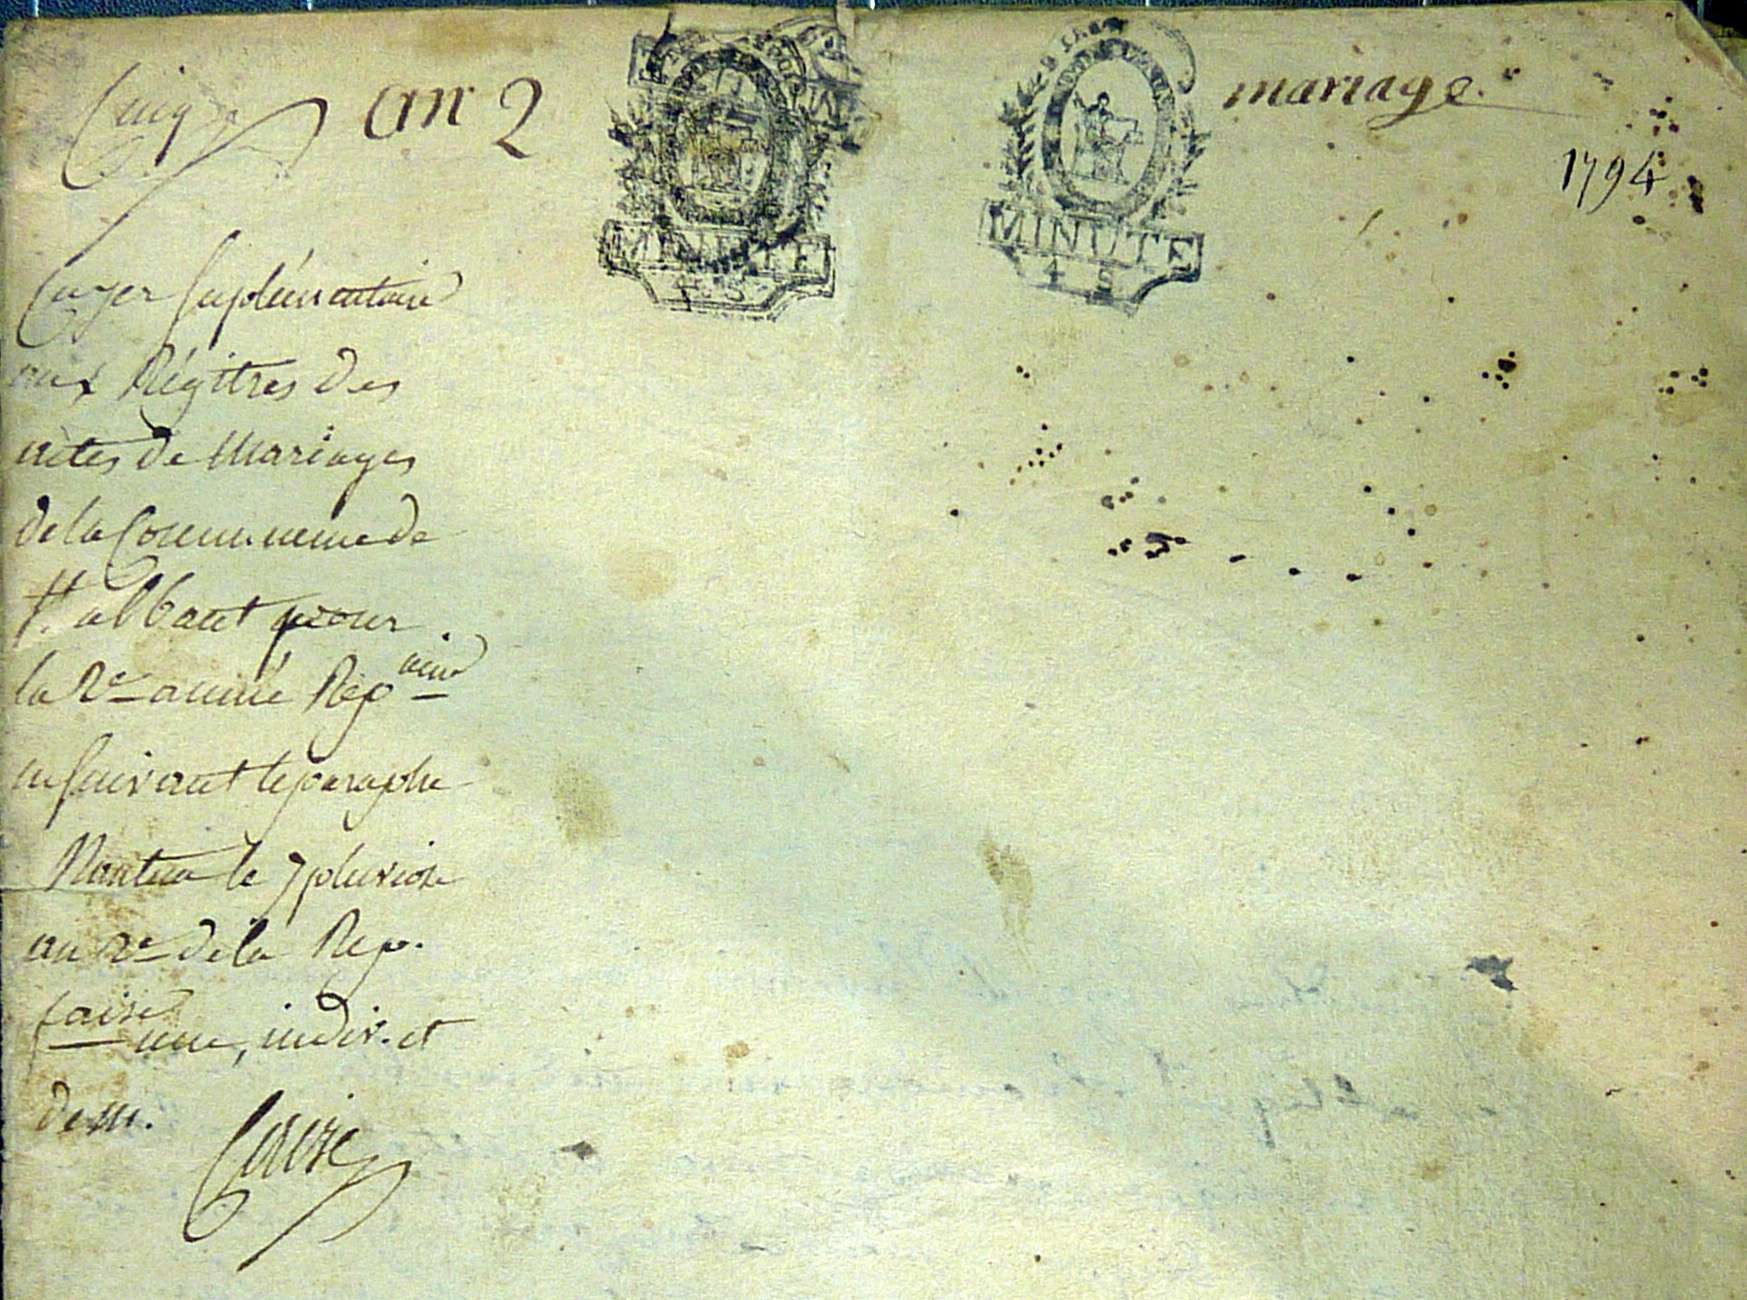 an 2
mariage.
1794
MINUTE
4 S
MINUTE
4 S
Cayer suplémentaire
aux Régitres des
actes de Mariages
de la Commune de
St. alban pour
la 2e année Rep
en suivant le paraphe
Nantua le 7 pluviose
an 2e de la Rep.
faise une, indiv. et
dem.